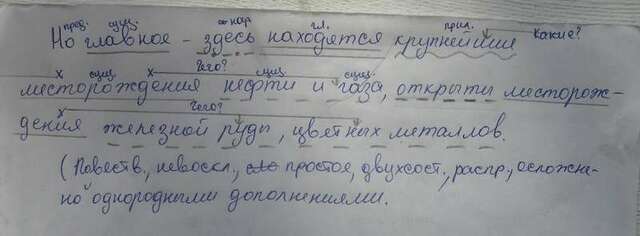 пред. сущ. нар. гл. прил.
Но главное - здесь находятся крупнейшие Какие?
х сущ. х Чего? сущ. сущ.
месторождения нефти и газа, открыты месторож-
х Чего?
дения железной руды, цветных металлов.
(Повеств., невоскл., простое, двухсост., распр., осложне-
но однородными дополнениями.